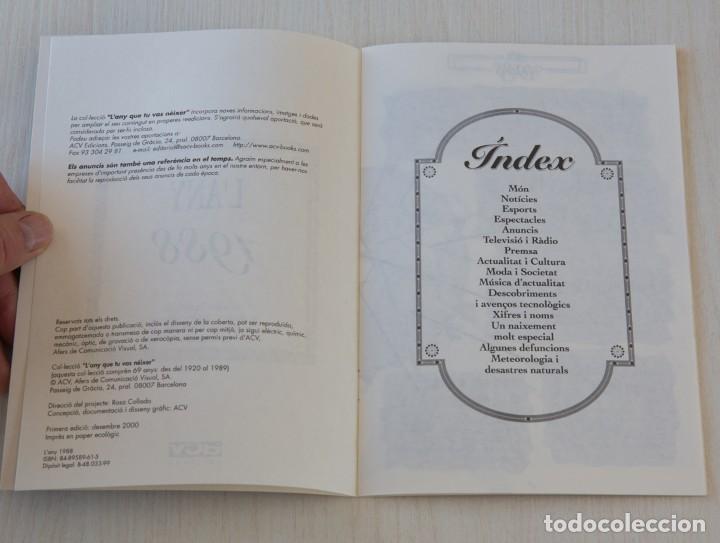 La col·lecció "L'any que tu vas néixer" incorpora noves informacions, imatges i dades
per ampliar el seu contingut en properes reedicions. S'agrairà qualsevol aportació, que serà
considerada per ser-hi inclosa.
Podeu adreçar les vostres aportacions a:
ACV Edicions. Passeig de Gràcia, 24, pral. 08007 Barcelona.
Fax 93 304 29 81 e-mail: editorial@acv-books.com http://www.acv-books.com
Els anuncis són també una referència en el temps. Agraïm especialment a les
empreses d'important presència des de fa molts anys en el nostre entorn, per haver-nos
facilitat la reproducció dels seus anuncis de cada època.
L'ANY
1988
Reservats tots els drets.
Cap part d'aquesta publicació, inclòs el disseny de la coberta, pot ser reproduïda,
emmagatzemada o transmesa de cap manera ni per cap mitjà, ja sigui elèctric, químic,
mecànic, òptic, de gravació o de xerocòpia, sense permís previ d'ACV,
Afers de Comunicació Visual, SA.
Col·lecció "L'any que tu vas néixer"
(aquesta col·lecció comprèn 69 anys: des del 1920 al 1989)
© ACV, Afers de Comunicació Visual, SA.
Passeig de Gràcia, 24, pral. 08007 Barcelona
Direcció del projecte: Rosa Collado
Concepció, documentació i disseny gràfic: ACV
Primera edició: desembre 2000
Imprès en paper ecològic
L'any 1988
ISBN: 84-89589-61-5
Dipòsit legal: B-48.033/99
acv
Índex
Món
Notícies
Esports
Espectacles
Anuncis
Televisió i Ràdio
Premsa
Actualitat i Cultura
Moda i Societat
Música d'actualitat
Descobriments
i avenços tecnològics
Xifres i noms
Un naixement
molt especial
Algunes defuncions
Meteorologia i
desastres naturals
todocoleccion